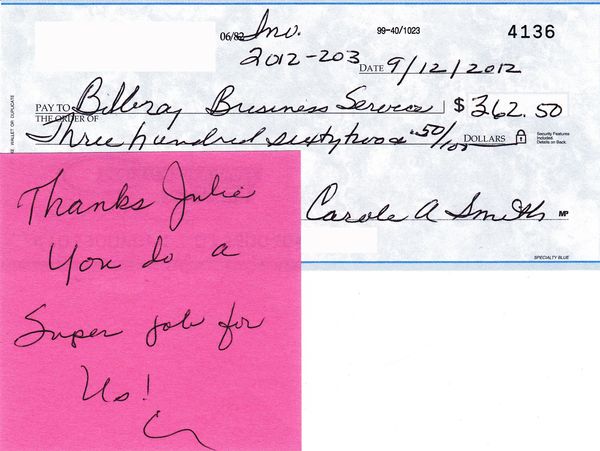 06/82 Inv. 99-40/1023 4136
2012-203
DATE 9/12/2012
PAY TO THE ORDER OF Billray Business Service $ 362.50
Three hundred sixtytwo & 50/100 DOLLARS
Security Features Included. Details on Back.
Carole A Smith MP
SPECIALTY BLUE
WALLET OR DUPLICATE
Thanks Julie
You do a
Super job for
Us!